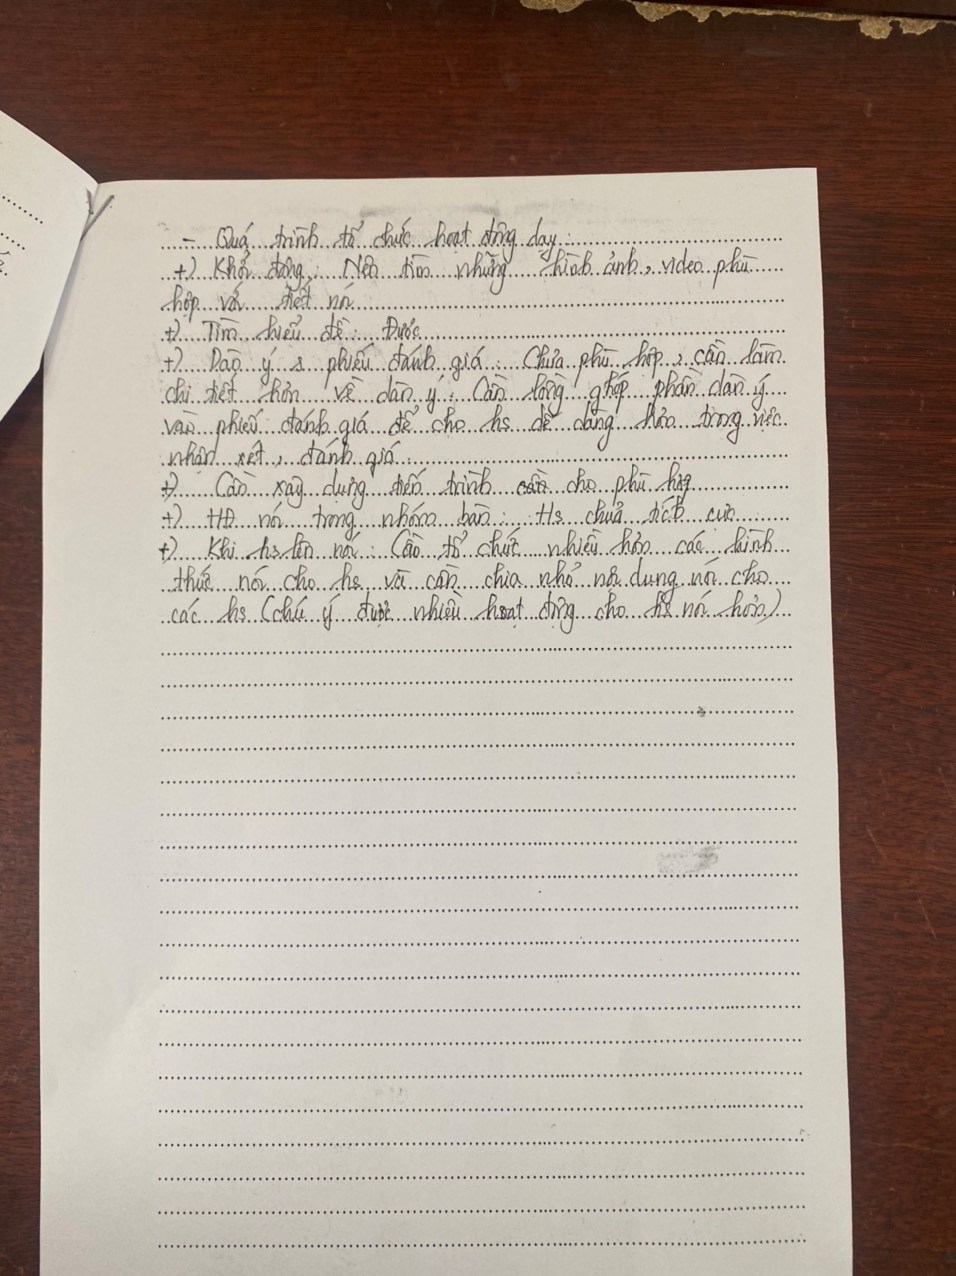 - Quá trình tổ chức hoạt động dạy:
+) Khởi động: Nên tìm những hình ảnh, video phù
hợp với tiết nói
+) Tìm hiểu đề: Được
+) Dàn ý & phiếu đánh giá: Chưa phù hợp, cần làm
chi tiết hơn về dàn ý. Cần lồng ghép phần dàn ý
vào phiếu đánh giá để cho hs dễ dàng hơn trong việc
nhận xét, đánh giá.
+) Cần xây dựng tiến trình cho phù hợp
+) HĐ nói trong nhóm bàn: Hs chưa tích cực
+) Khi hs lên nói: Cần tổ chức nhiều hơn các hình
thức nói cho hs và cần chia nhỏ nội dung nói cho
các hs (chú ý được nhiều hoạt động cho hs nói hơn)